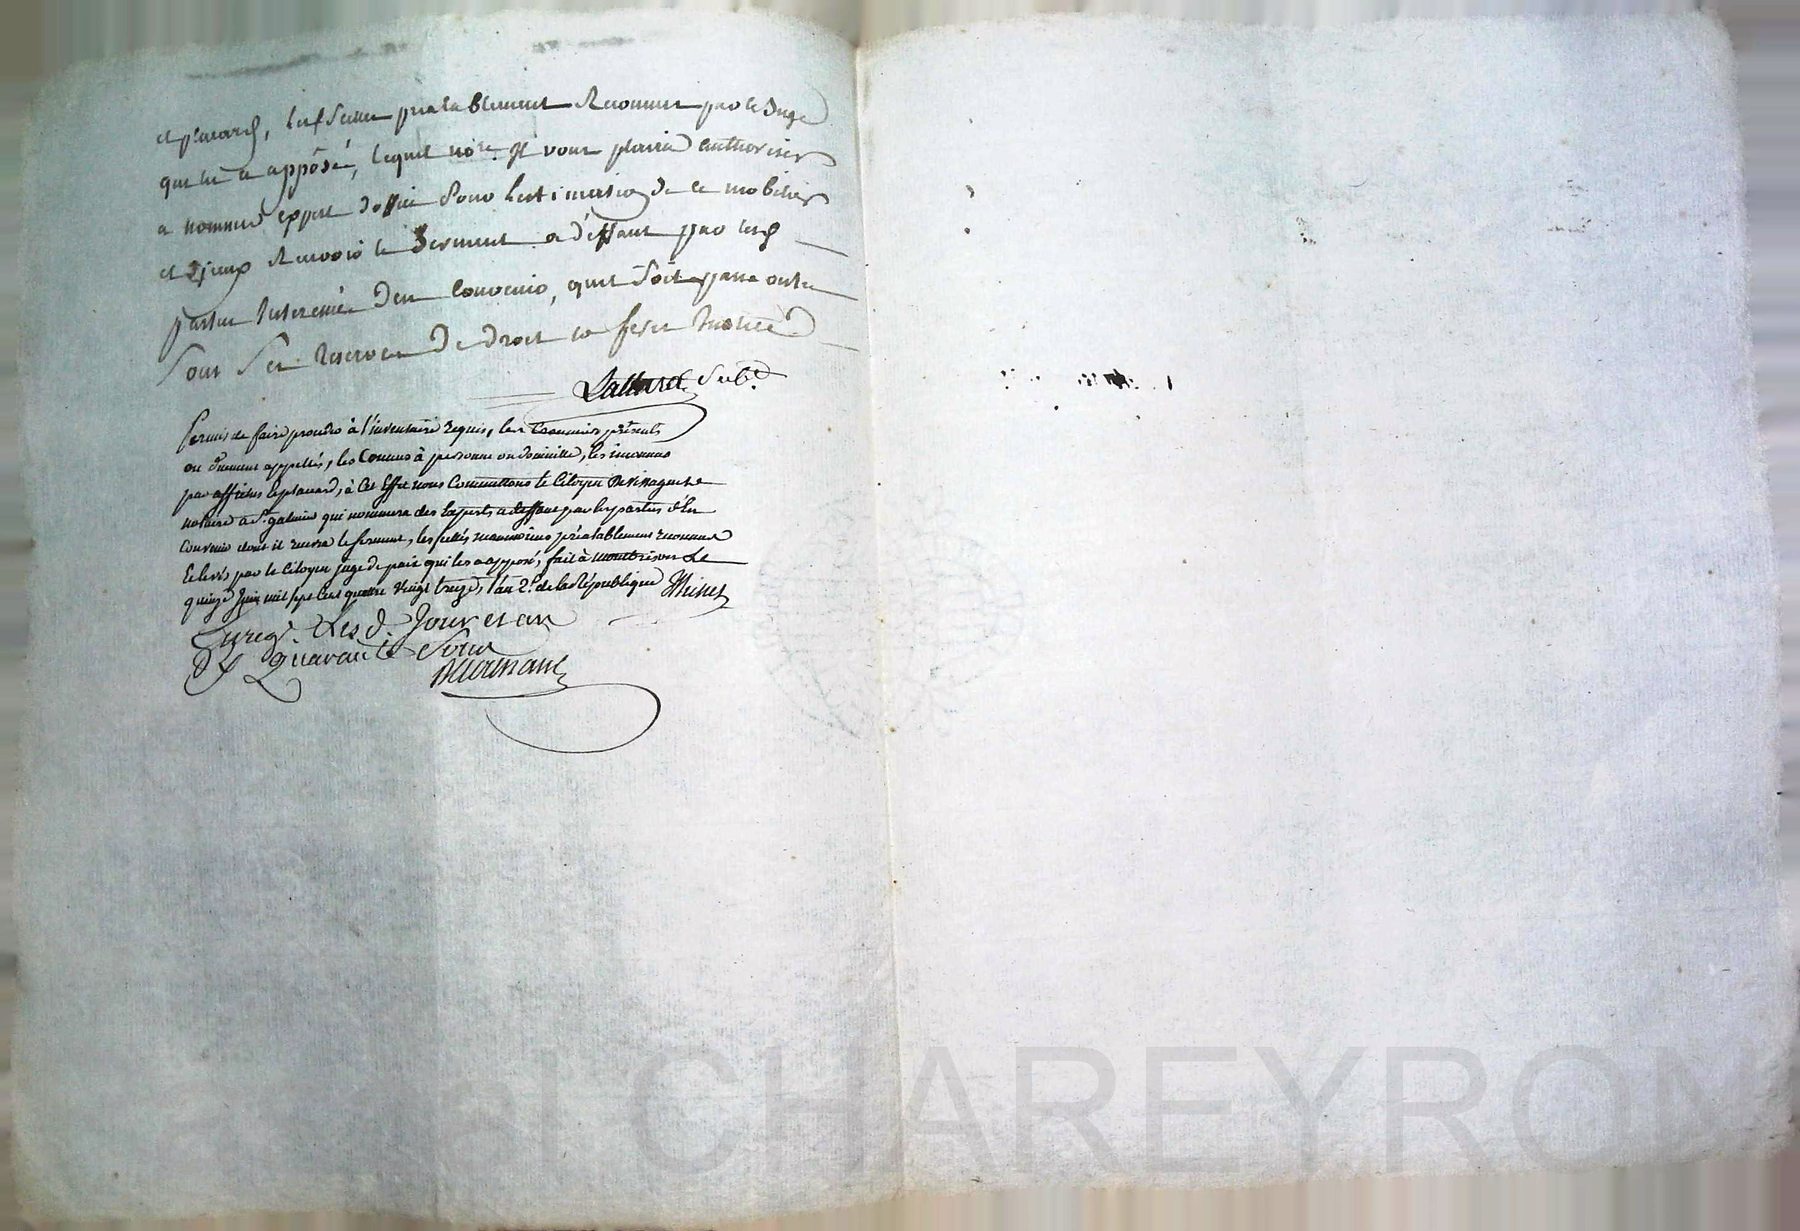 et placard, les scellés préalablement Reconnus par le Juge
qui les a apposés, lequel nore. Il vous plaira authoriser
a nommer expert doffice pour lestimation de ce mobilier
et d'jceux Recevoir le Serment a déffaut par les
parties Interessée d'en Convenir, quil soit passé outre
Sous Ses Reserves de droit et ferez Justice
Lallured Sub.
Permis de faire procéder à l'inventaire requis, les Creanciers présents
ou duement appellés, les Connus à personne ou domicille, les inconnus
par affiches & placard, à Cet Effet nous Commettons le Citoyen
notaire a St. galmier qui nommera des Experts a deffaut par les parties d'en
Convenir dont il recevra le serment, les scellés neanmoins préalablement reconnus
& levés par le Citoyen juge de paix qui les a apposés, fait à montbrison Le
quinze Juin mil sept Cent quatre Vingt treize, l'an 2e. de la République
Enreg. Les d. Jour et an
Quarante Sous